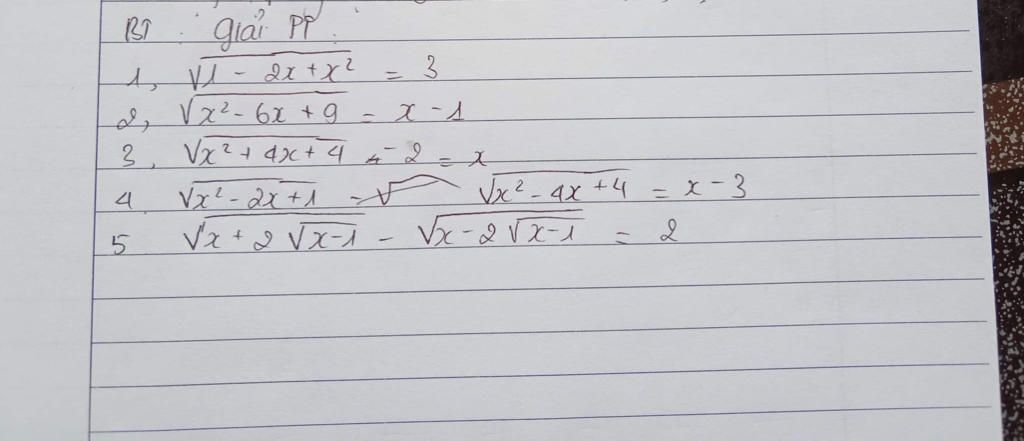 BT : Giải PT :
1, √1 - 2x + x² = 3
2, √x² - 6x + 9 = x - 1
3, √x² + 4x + 4 - 2 = x
4. √x² - 2x + 1 - √x² - 4x + 4 = x - 3
5 √x + 2√x-1 - √x - 2√x-1 = 2